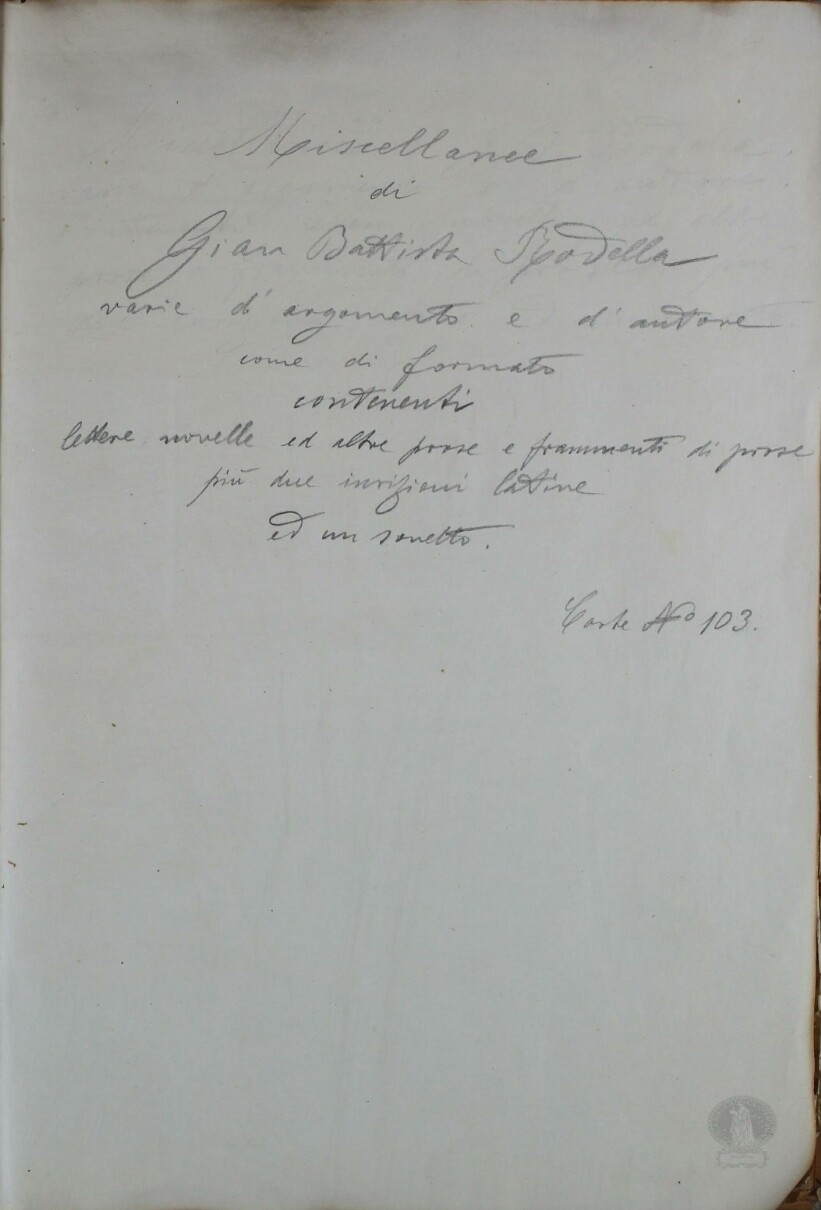 Miscellanee
di
Gian Battista Rodella
varie d' argomento e d' autore
come di formato
contenenti
lettere novelle ed altre prose e frammenti di prose
più due inscrizioni latine
ed un sonetto.
Carte No 103.